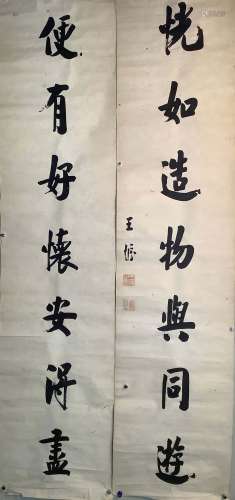 恍如造物與同遊
便有好懷安得盡
王修